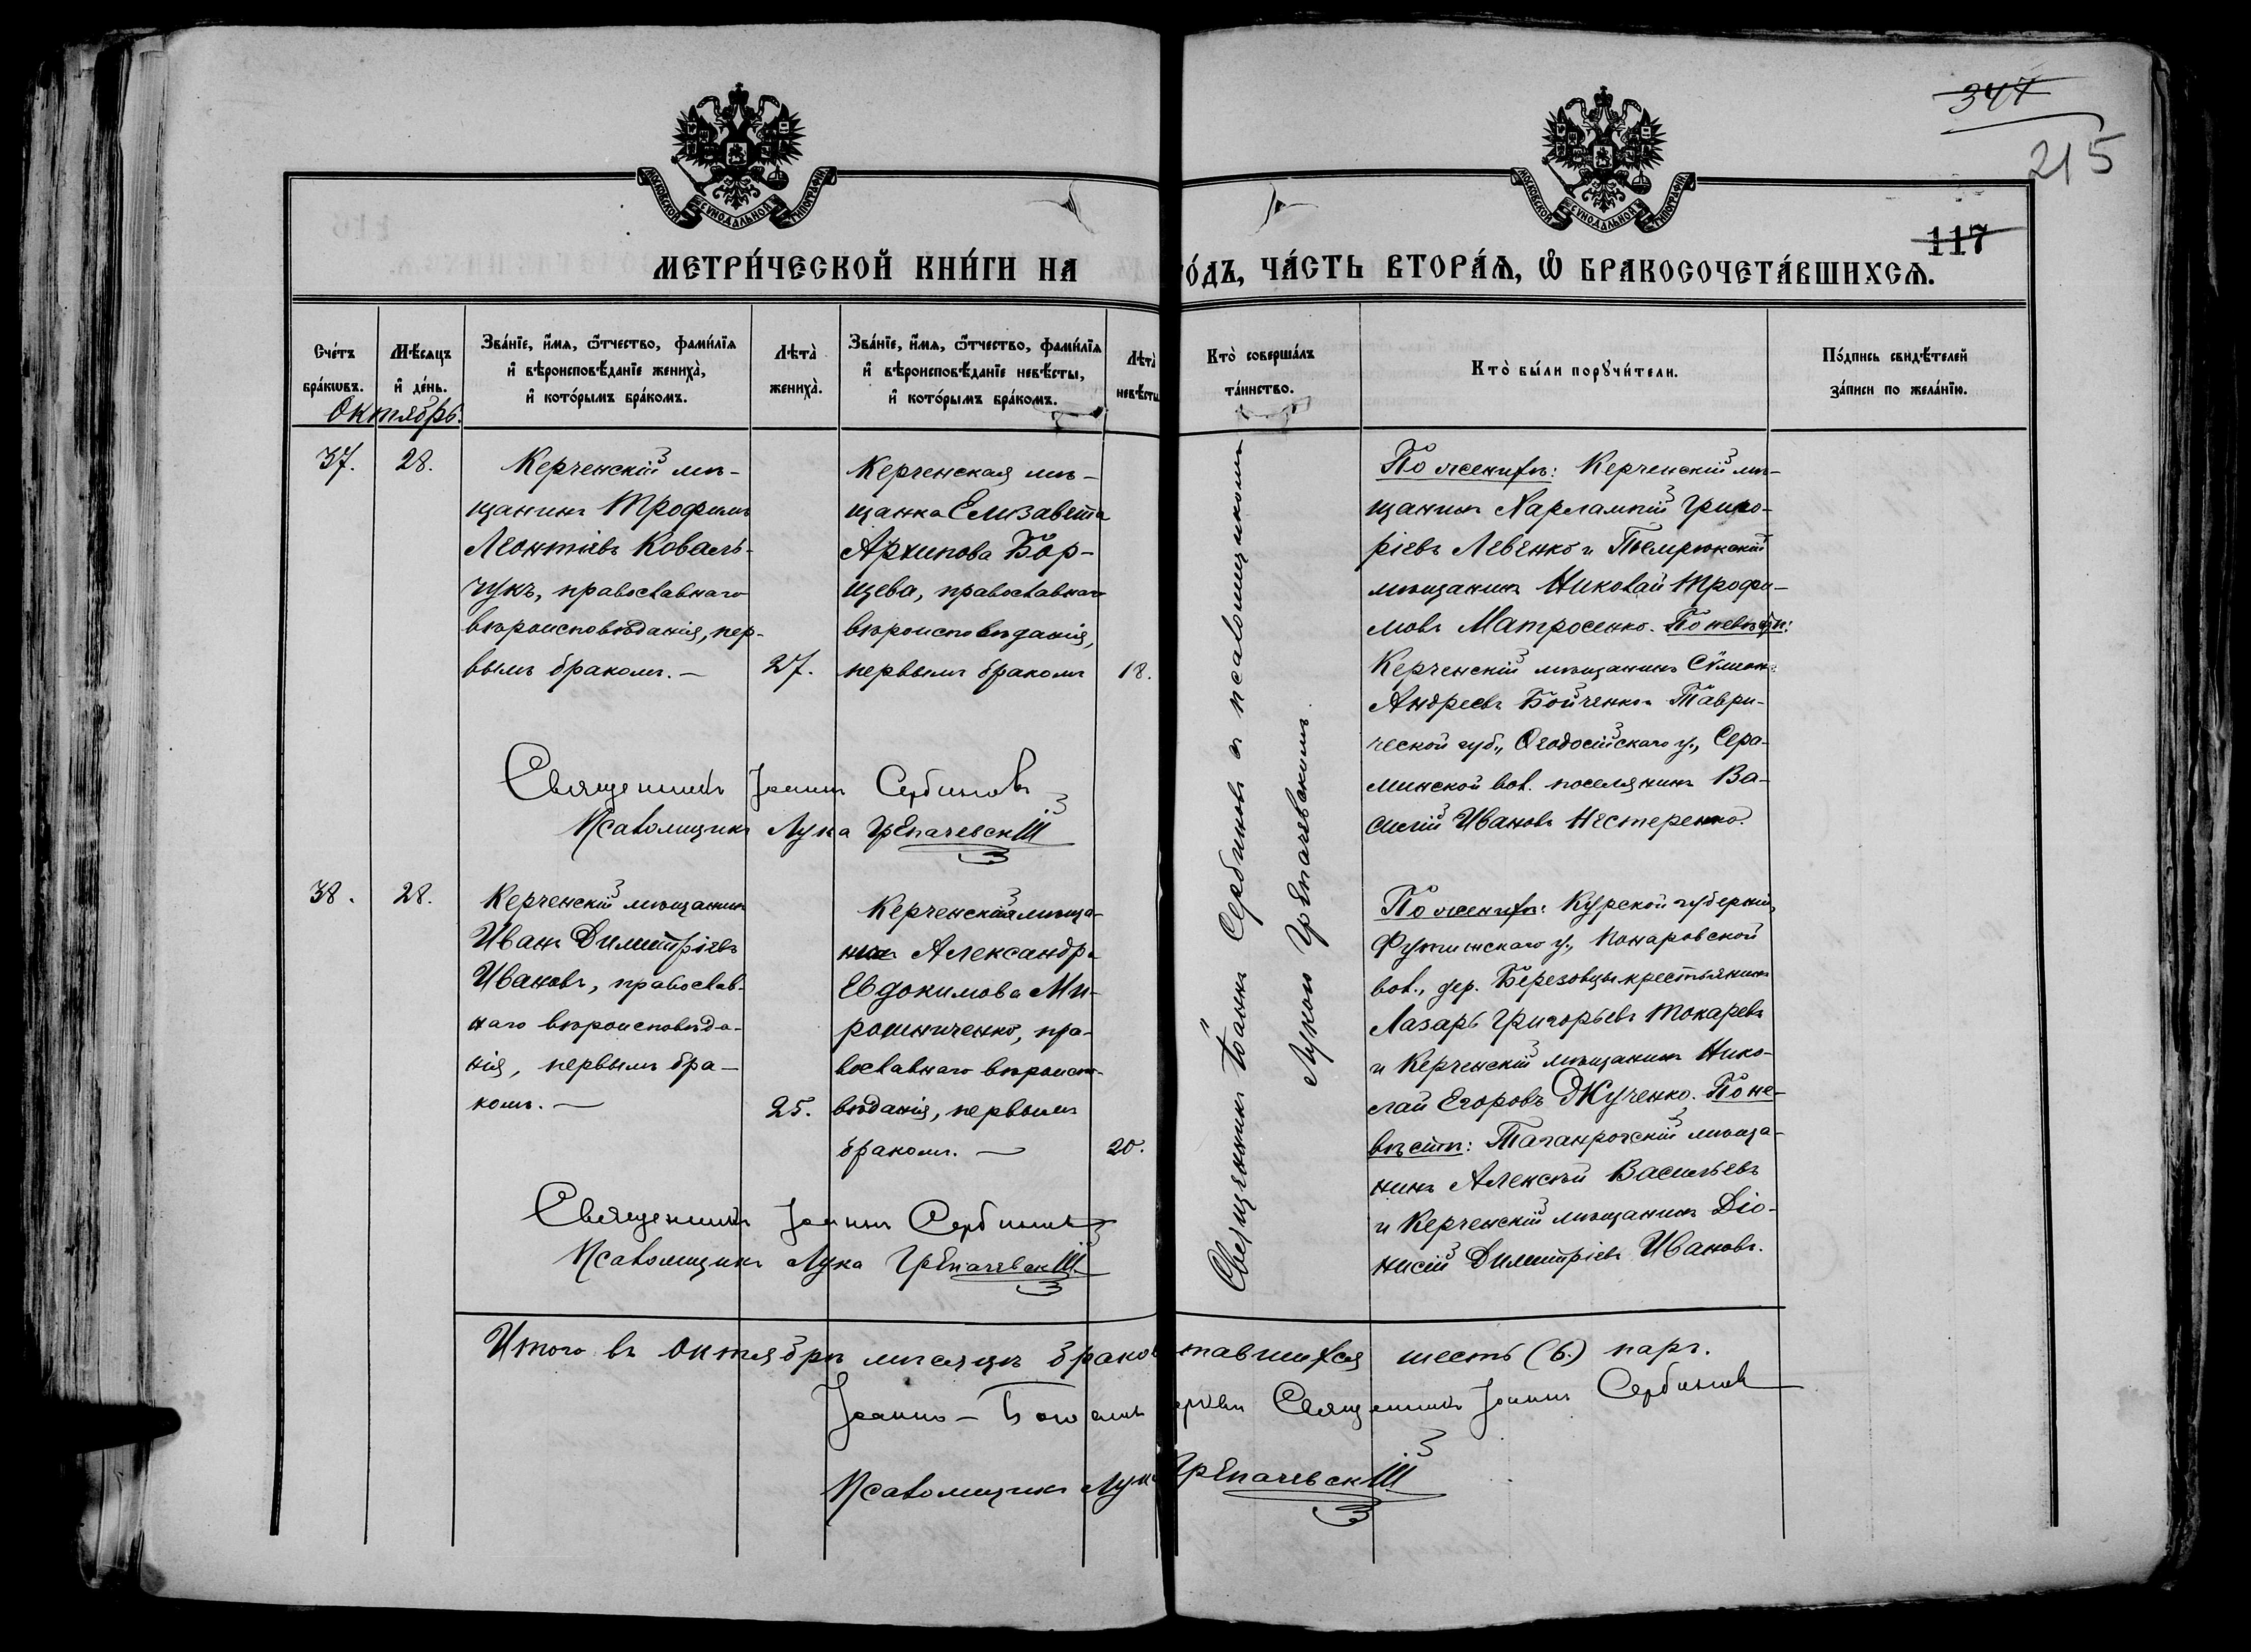 347
215
117
МОСКОВСКОЙ СѴНОДАЛЬНОЙ ТИПОГРАФІИ
МОСКОВСКОЙ СѴНОДАЛЬНОЙ ТИПОГРАФІИ
МЕТРИ́ЧЕСКОЙ КНИ́ГИ НА
ГО́ДЪ, ЧА́СТЬ ВТОРА́Ѧ, Ѿ БРАКОСОЧЕТА́ВШИХСѦ.
Сче́тъ
бра́кѡвъ.
Мѣ́сяцъ
и҆ де́нь.
Зва́нїе, и҆́мѧ, ѻ҆́тчество, фами́лїѧ
и҆ вѣроисповѣ́данїе жениха̀,
и҆ кото́рымъ бра́комъ.
Лѣта̀
жениха̀.
Зва́нїе, и҆́мѧ, ѻ҆́тчество, фами́лїѧ
и҆ вѣроисповѣ́данїе невѣ́сты,
и҆ кото́рымъ бра́комъ.
Лѣта̀
невѣ́сты
Кто̀ соверша́лъ
та́инство.
Кто̀ бы́ли порꙋчи́тели.
По́дпись свидѣ́телей
за́писи по жела́нїю.
Октябрь.
37.
28.
Керченскій мѣ-
щанинъ Трофимъ
Леонтіевъ Коваль-
чукъ, православнаго
вѣроисповѣданія, пер-
вымъ бракомъ. —
27.
Керченская мѣ-
щанка Елизавета
Архипова Бор-
щева, православнаго
вѣроисповѣданія,
первымъ бракомъ
18.
Священникъ Іоаннъ Сербиновъ и псаломщикомъ
Лукою Грепачевскимъ.
По женихѣ: Керченскій мѣ-
щанинъ Харлампій Григо-
ріевъ Левченко и Темрюкскій
мѣщанинъ Николай Трофи-
мовъ Матросенко. По невѣстѣ:
Керченскій мѣщанинъ Сѵмеонъ
Андреевъ Бойченко и Таври-
ческой губ., Ѳеодосійскаго у., Сера-
минской вол. поселянинъ Ва-
силій Ивановъ Нестеренко.
Священникъ Іоаннъ Сербиновъ
Псаломщикъ Лука Грепачевскій
38.
28.
Керченскій мѣщанинъ
Иванъ Димитріевъ
Ивановъ, православ-
наго вѣроисповѣда-
нія, первымъ бра-
комъ. —
25.
Керченская мѣща-
нка Александра
Евдокимова Ми-
рошниченко, пра-
вославнаго вѣроиспо-
вѣданія, первымъ
бракомъ. —
20.
По женихѣ: Курской губерніи,
у.,
вол., дер. Березовцы крестьянинъ
Лазарь Григорьевъ Токаревъ
и Керченскій мѣщанинъ Нико-
лай Егоровъ Жученко. По не-
вѣстѣ: Таганрогскій мѣща-
нинъ Алексѣй Васильевъ
и Керченскій мѣщанинъ Діо-
нисій Димитріевъ Ивановъ.
Священникъ Іоаннъ Сербиновъ
Псаломщикъ Лука Грепачевскій
Итого въ октябрѣ мѣсяцѣ брако тавшихся шесть (6.) паръ.
Іоанно- еркви Священникъ Іоаннъ Сербиновъ
Псаломщикъ Лука Грепачевскій